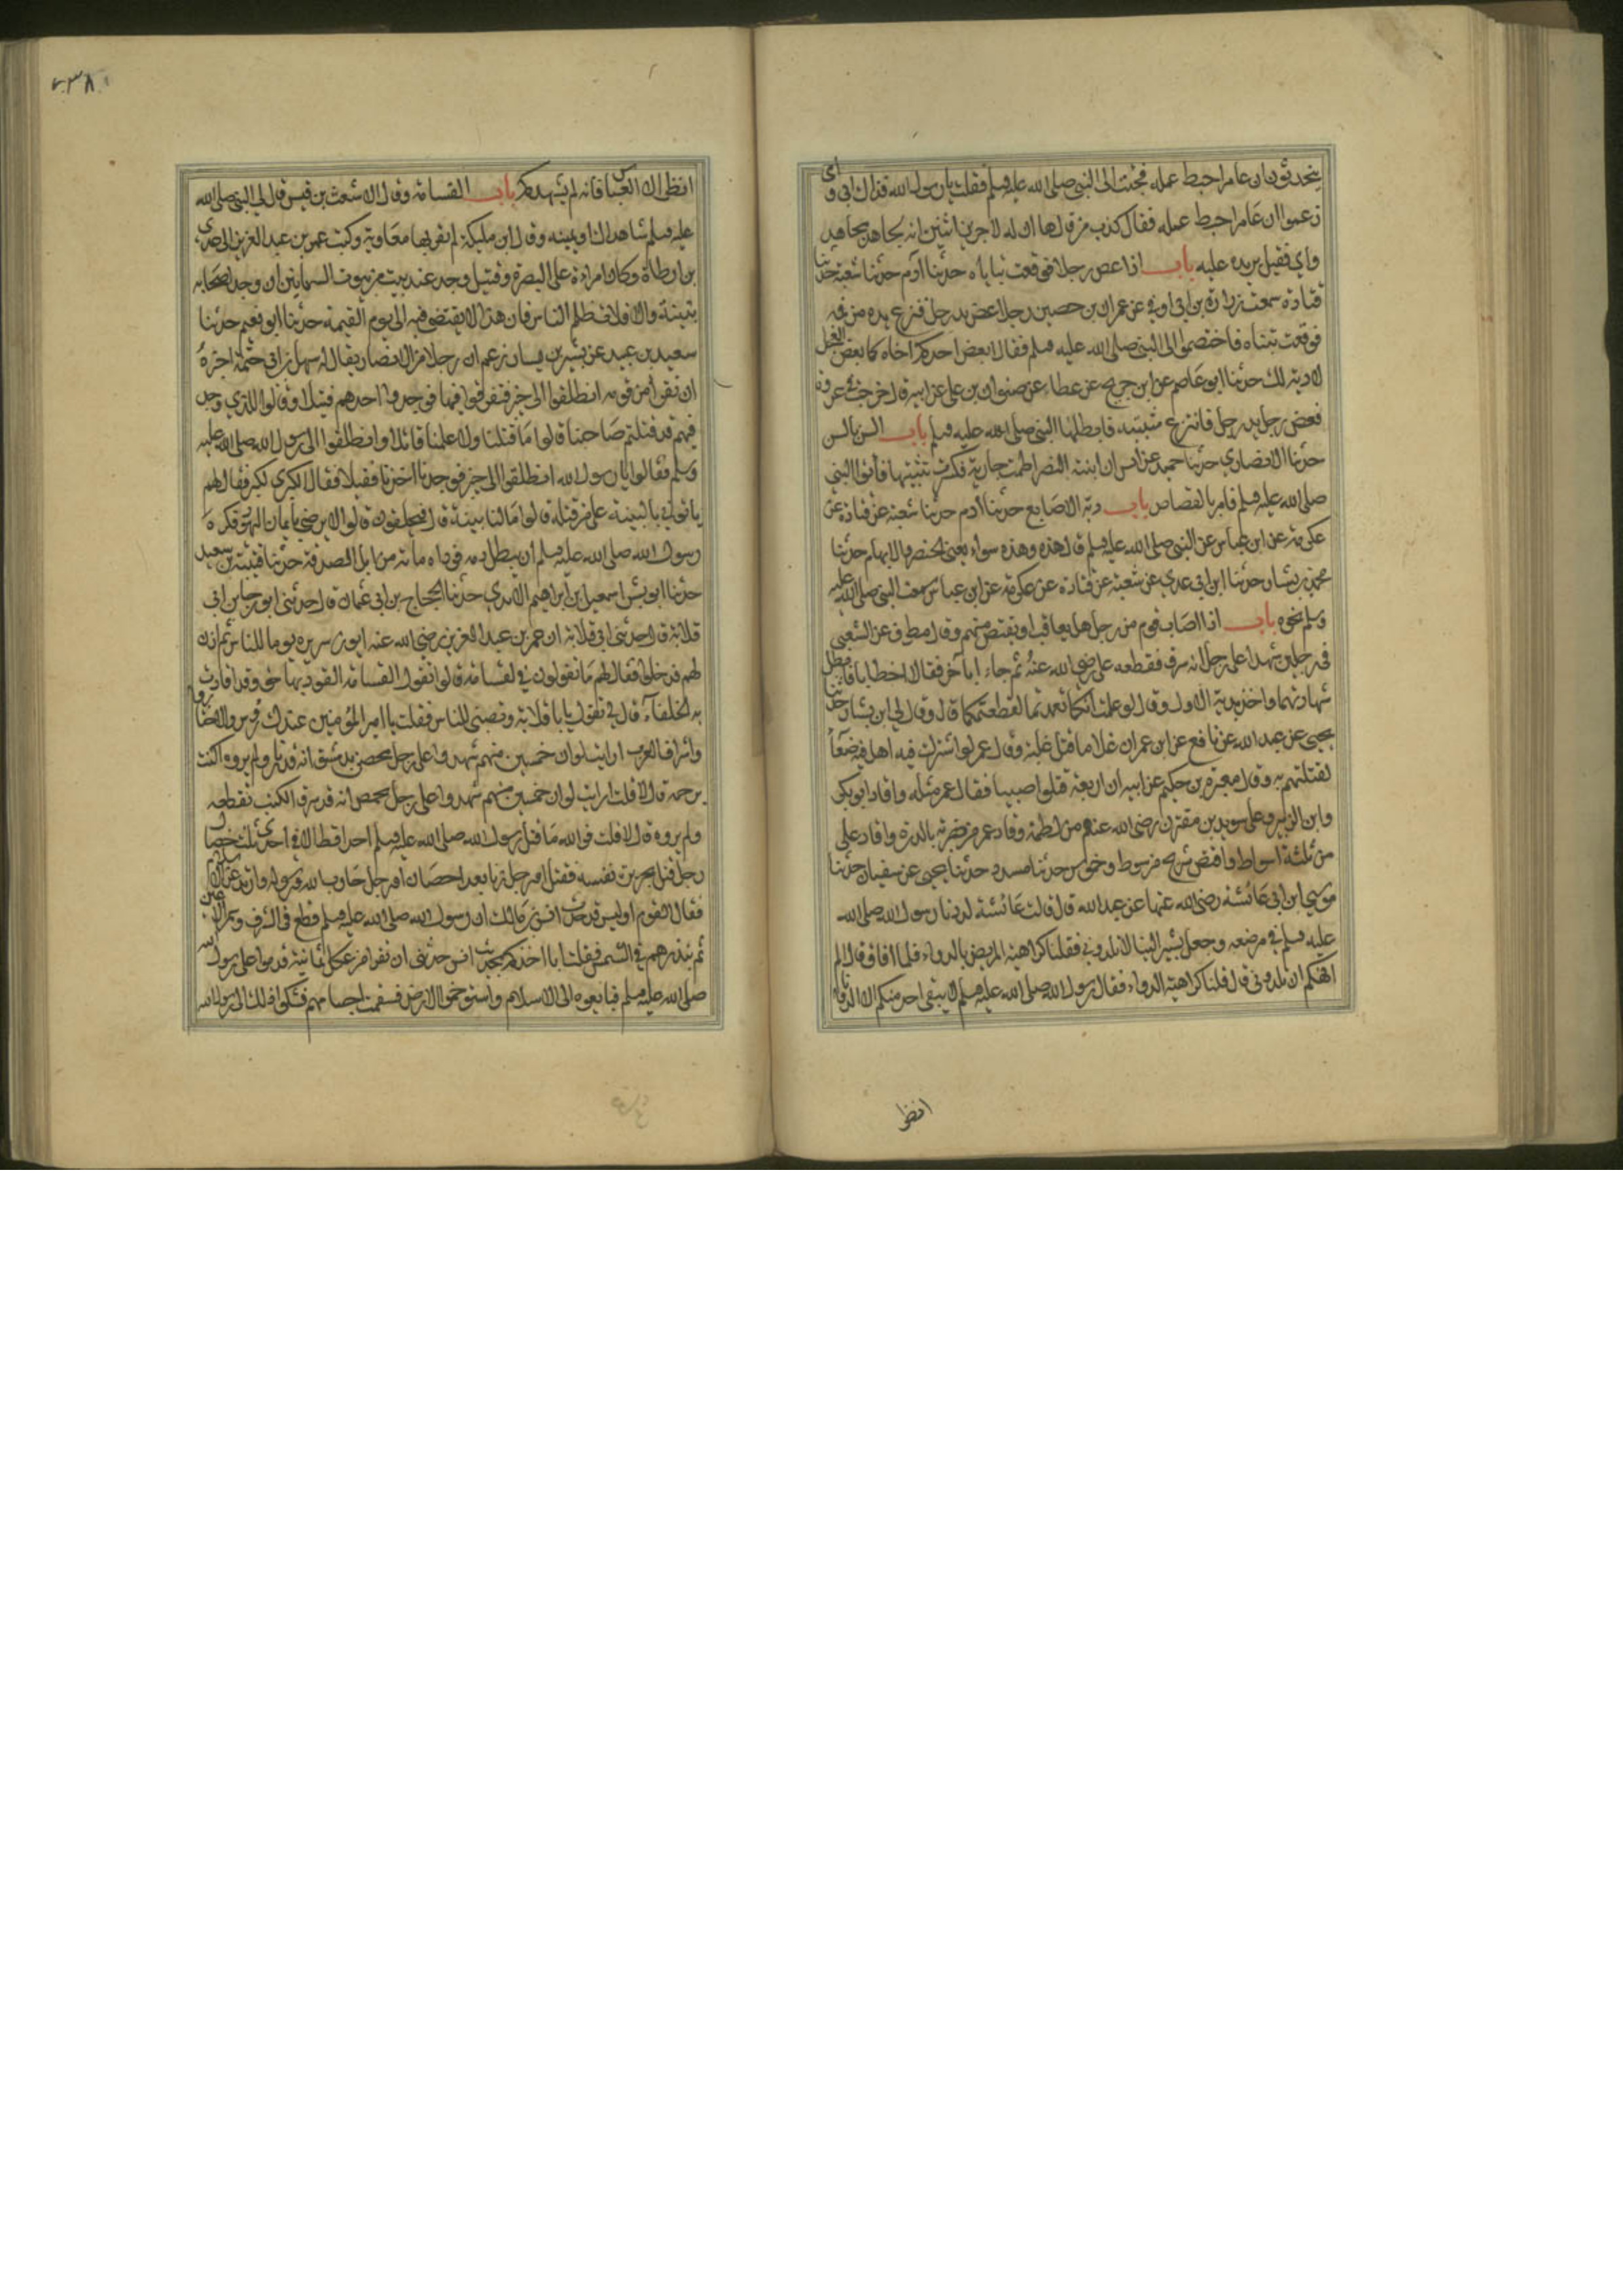 يتحدثون ان عامرا حبط عمله فجئت الى النبي صلى الله عليه وسلم فقلت يا رسول الله فداك ابي وامي
زعموا ان عامرا حبط عمله فقال كذب من قالها ان له لاجرين اثنين انه لجاهد مجاهد
واي قتيل يزيده عليه باب اذا عض رجلا فوقعت ثناياه حدثنا آدم حدثنا شعبة حدثنا
قتادة سمعت زرارة بن ابي اوفى عن عمران بن حصين ان رجلا عض يد رجل فنزع يده من فمه
فوقعت ثنيتاه فاختصموا الى النبي صلى الله عليه وسلم فقال يعض احدكم اخاه كما يعض الفحل
لا دية لك حدثنا ابو عاصم عن ابن جريج عن عطاء عن صفوان بن يعلى عن ابيه قال خرجت في غزوة
فعض رجل يد رجل فانتزع ثنيته فابطلها النبي صلى الله عليه وسلم باب السن بالسن
حدثنا الانصاري حدثنا حميد عن انس ان ابنة النضر لطمت جارية فكسرت ثنيتها فأتوا النبي
صلى الله عليه وسلم فامر بالقصاص باب دية الاصابع حدثنا آدم حدثنا شعبة عن قتادة عن
عكرمة عن ابن عباس عن النبي صلى الله عليه وسلم قال هذه وهذه سواء يعني الخنصر والابهام حدثنا
محمد بن بشار حدثنا ابن ابي عدي عن شعبة عن قتادة عن عكرمة عن ابن عباس سمعت النبي صلى الله عليه
وسلم نحوه باب اذا اصاب قوم من رجل هل يعاقب او يقتص منهم وقال مطرف عن الشعبي
في رجلين شهدا على رجل انه سرق فقطعه علي رضي الله عنه ثم جاءا بآخر فقالا اخطانا فابطل
شهادتهما واخذ بدية الاول وقال لو علمت انكما تعمدتما لقطعتكما قال وقال لي ابن بشار حدثنا
يحيى عن عبيد الله عن نافع عن ابن عمر ان غلاما قتل غيلة وقال عمر لو اشترك فيه اهل صنعاء
لقتلتهم به وقال مغيرة بن حكيم عن ابيه ان اربعة قتلوا صبيا فقال عمر مثله واقاد ابو بكر
وابن الزبير وعلي سويد بن مقرن رضي الله عنهم من لطمة وقاد عمر من ضربة بالدرة واقاد علي
من ثلثة اسواط واقتص شريح من سوط وخموش حدثنا مسدد حدثنا يحيى عن سفيان حدثنا
موسى ابن ابي عائشة رضي الله عنها عن عبيد الله قال قالت عائشة لددنا رسول الله صلى الله
عليه وسلم في مرضه وجعل يشير الينا لا تلدوني فقلنا كراهية المريض بالدواء فلما افاق قال الم
انهكم ان تلدوني قال قلنا كراهية الدواء فقال رسول الله صلى الله عليه وسلم لا يبقى احد منكم الا لد وانا
انظر
٤٣٨
انظر الا العباس فانه لم يشهدكم باب القسامة وقال الاشعث بن قيس قال لي النبي صلى الله
عليه وسلم شاهداك او يمينه وقال ابن مليكة لم تقد بها معاوية وكتب عمر بن عبد العزيز الى عدي
بن ارطاة وكان امراده على البصرة في قتيل وجد عند بيت من بيوت السمانين ان وجد اصحابه
بينة والا فلا تظلم الناس فان هذا لا يقتضى فيه الى يوم القيمة حدثنا ابو نعيم حدثنا
سعيد بن عبيد عن بشير بن يسار زعم ان رجلا من الانصار يقال له سهل بن ابي حثمة اخبره
ان نفرا من قومه انطلقوا الى خيبر فتفرقوا فيها فوجدوا احدهم قتيلا وقالوا للذي وجد
فيهم قد قتلتم صاحبنا قالوا ما قتلنا ولا علمنا قاتلا وانطلقوا الى رسول الله صلى الله عليه
وسلم فقالوا يا رسول الله انطلقوا الى خيبر فوجدنا احدنا قتيلا فقال الكبر الكبر فقال لهم
ياتون بالبينة على من قتله قالوا ما لنا بينة قال فيحلفون قالوا لا نرضى بايمان اليهود فكره
رسول الله صلى الله عليه وسلم ان يبطل دمه فوداه مائة من ابل الصدقة حدثنا قتيبة بن سعيد
حدثنا ابو بشر اسمعيل ابن ابراهيم الاسدي حدثنا الحجاج بن ابي عثمان قال حدثني ابو رجاء بن ابي
قلابة قال حدثني ابي قلابة ان عمر بن عبد العزيز رضي الله عنه ابرز سريره يوما للناس ثم اذن
لهم فدخلوا فقال لهم ما تقولون في القسامة قالوا نقول القسامة القود بها حق وقد اقادت
به الخلفاء قال لي ما تقول يا ابا قلابة ونصبني للناس فقلت يا امير المؤمنين عندك رؤس الاجناد
واشراف العرب ارايت لو ان خمسين منهم شهدوا على رجل محصن بدمشق انه قد زنا ولم يروه اكنت
ترجمه قال لا قلت ارايت لو ان خمسين منهم شهدوا على رجل بحمص انه قد سرق اكنت تقطعه
ولم يروه قال لا قلت فوالله ما قتل رسول الله صلى الله عليه وسلم احدا قط الا في احدى ثلث خصال
رجل قتل بجريرة نفسه فقتل او رجل زنا بعد احصان او رجل حارب الله ورسوله وارتد عن الاسلام
فقال القوم اوليس قد حدث انس بن مالك ان رسول الله صلى الله عليه وسلم قطع في السرق وسمر الاعين
ثم نبذهم في الشمس فقلت انا احدثكم بحديث انس حدثني انس ان نفرا من عكل ثمانية قدموا على رسول الله
صلى الله عليه وسلم فبايعوه الى الاسلام واستوخموا الارض فسقمت اجسامهم فشكوا ذلك الى رسول الله